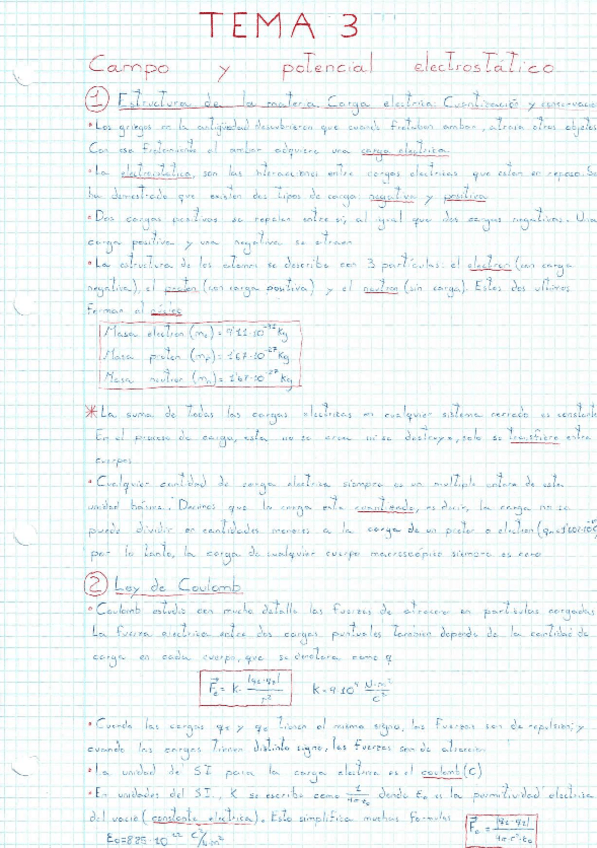 TEMA 3
Campo y potencial electrostático
① Estructura de la materia. Carga electrica. Cuantización y conservacion
• Los griegos en la antigüedad descubrieron que cuando frotaban ambar, atraia otros objetos.
Con ese frotamiento el ambar adquiere una carga electrica.
• La electrostática, son las interacciones entre cargas electricas que estan en reposo. Se
ha demostrado que existen dos tipos de carga: negativa y positiva
• Dos cargas positivas se repelen entre si; al igual que dos cargas negativas. Una
carga positiva y una negativa se atraen
• La estructura de los atomos se describe con 3 particulas: el electron (con carga
negativa), el proton (con carga positiva) y el neutron (sin carga). Estos dos ultimos
forman el núcleo
Masa electron (mₑ) = 9'11·10⁻³¹ Kg
Masa proton (mₚ) = 1'67·10⁻²⁷ Kg
Masa neutron (mₙ) = 1'67·10⁻²⁷ Kg
* La suma de todas las cargas electricas en cualquier sistema cerrado es constante
En el proceso de carga, esta no se crea ni se destruye, solo se transfiere entre
cuerpos
• Cualquier cantidad de carga electrica siempre es un multiplo entero de esta
unidad básica. Decimos que la carga esta cuantizada, es decir, la carga no se
puede dividir en cantidades menores a la carga de un proton o electron
por lo tanto, la carga de cualquier cuerpo macroscópico siempre es cero
② Ley de Coulomb
• Coulomb estudio con mucho detalle las fuerzas de atraccion en particulas cargadas
La fuerza electrica entre dos cargas puntuales tambien depende de la cantidad de
carga en cada cuerpo, que se denotara como q
F⃗ₑ = K· |q₁·q₂| / r² K = 9·10⁹ N·m²/C²
• Cuando las cargas q₁ y q₂ tienen el mismo signo, las fuerzas son de repulsion; y
cuando las cargas tienen distinto signo, las fuerzas son de atraccion
• La unidad del SI para la carga electrica es el coulomb (C)
• En unidades del SI, K se escribe como 1/4π·ε₀ donde ε₀ es la permitividad electrica
del vacio (constante electrica). Esto simplifica muchas formulas
ε₀ = 8'85·10⁻¹² C²/N·m² F⃗ₑ = |q₁·q₂| / 4π·r²·ε₀